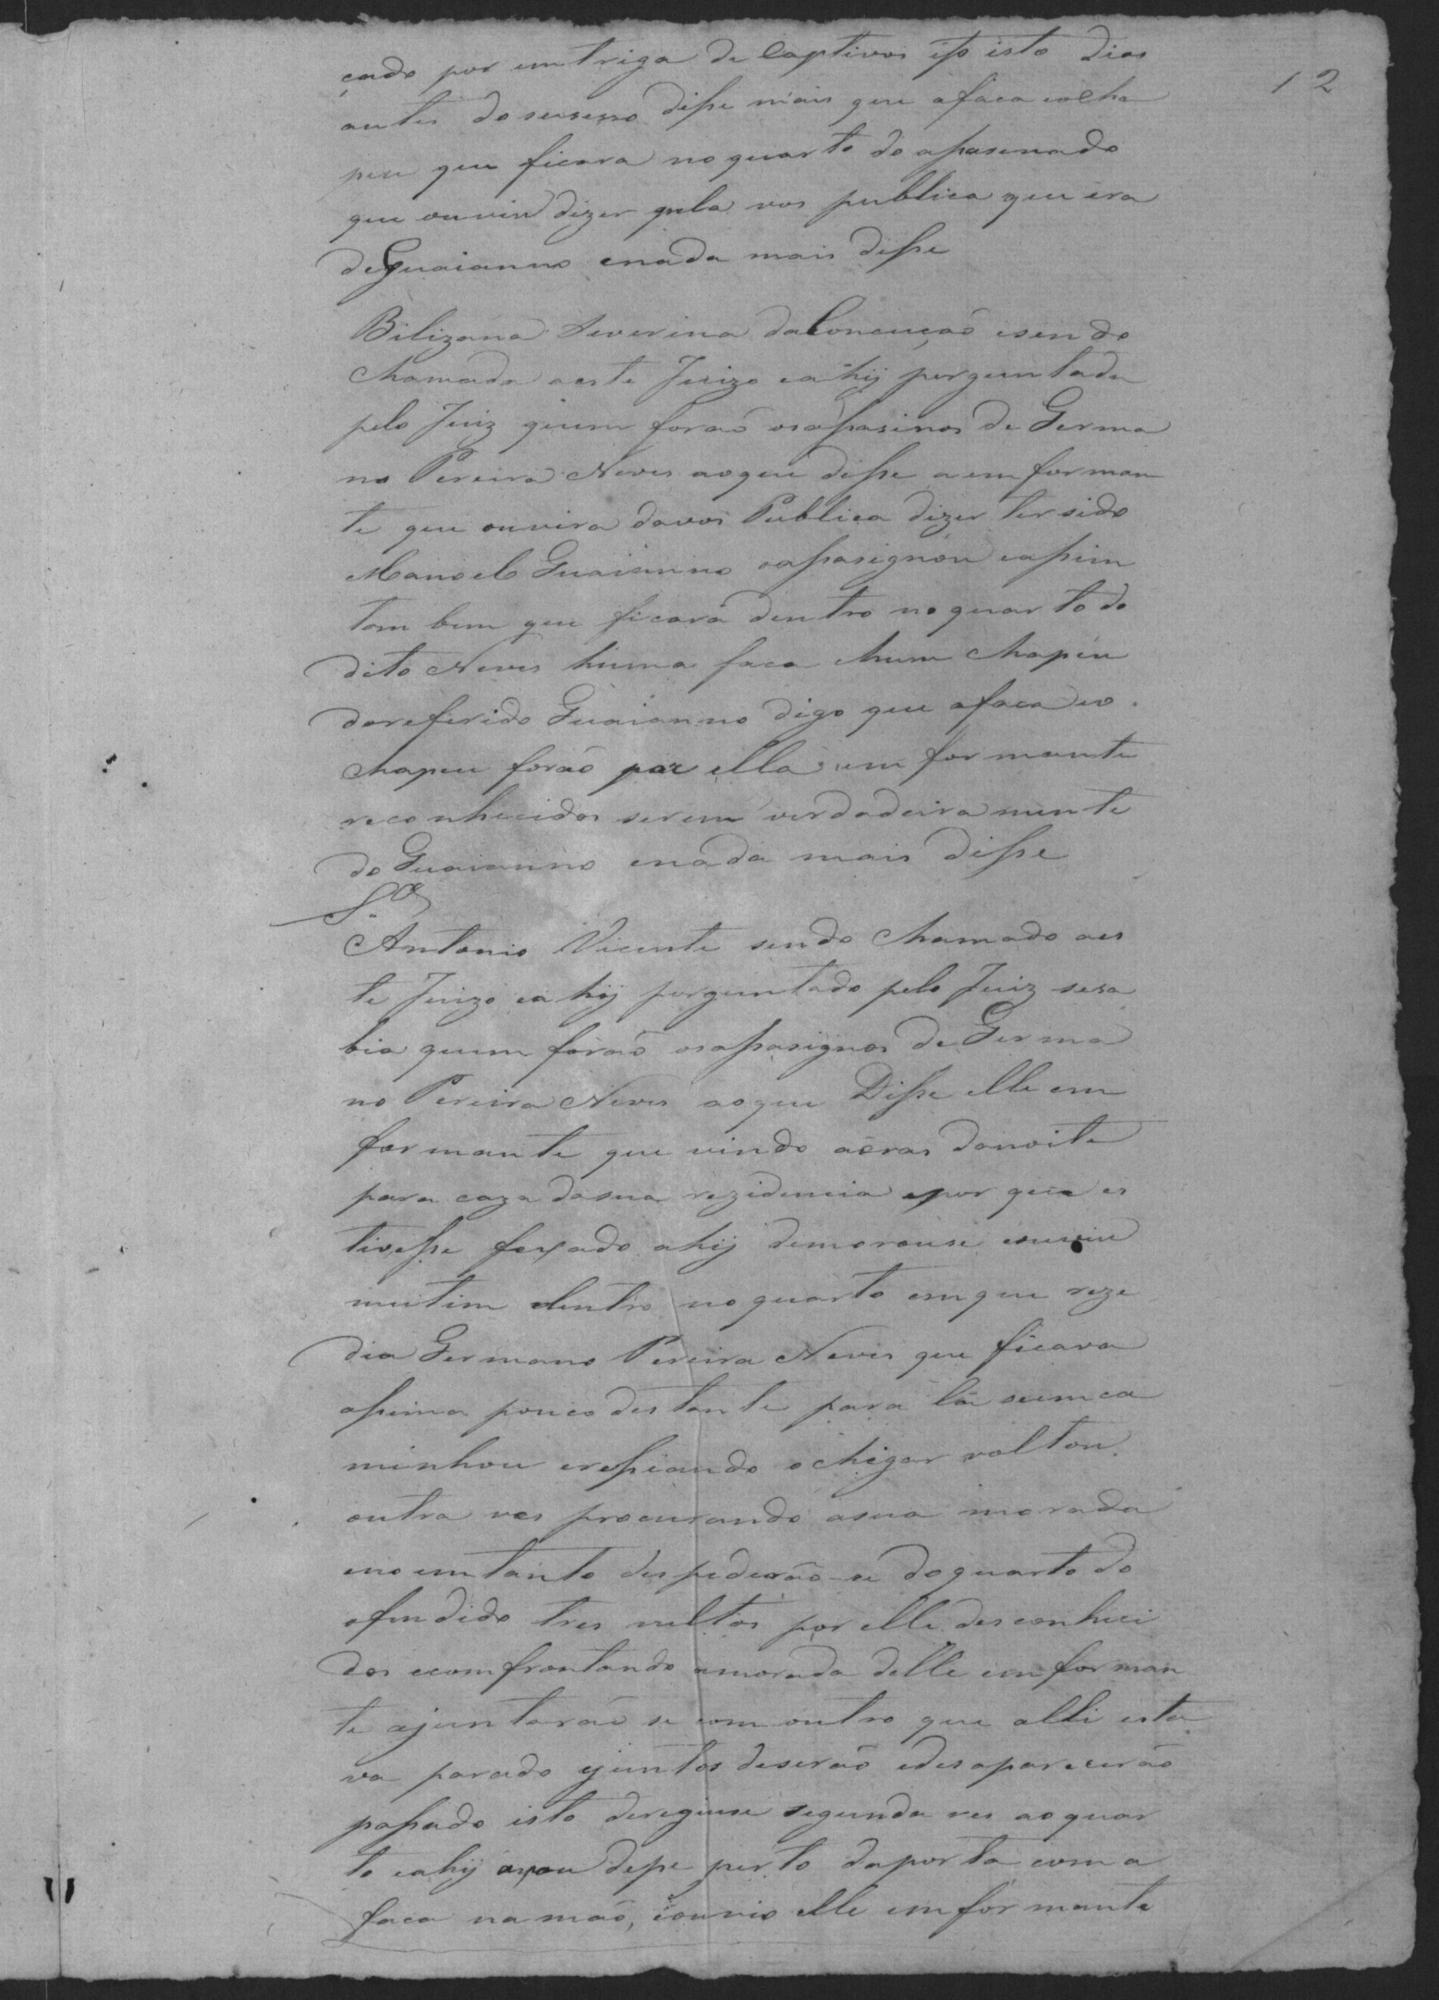 12
çado por emtriga de Captivos isto isto dias
antes do sucesso disse mais que a faca e o cha
peu que ficara no quarto do assasinado
que ouvio dizer pela vos publica que era
de Guaianno e nada mais disse
Bilizana Severina da Conceução e sendo
chamada a este Juizo e ahy perguntada
pelo Juiz quem forão os assasinos de Germa
no Pereira Neves ao que disse a emforman
te que ouvira da vos Publica dizer ter sido
Manoel Guaianno o assasignou e assim
tam bem que ficara dentro no quarto do
dito Neves huma faca e hum chapeu
do referido Guaianno digo que a faca e o
chapeu forão por ella em formante
reconhecidos serem verdadeira mente
do Guaianno e nada mais disse
Antonio Vicente sendo chamado a es
te Juizo e a hy perguntado pelo Juiz se sa
bia quem forão os assasignos de Germa
no Pereira Neves ao que Disse elle em
formante que vindo a óras da noite
para caza da sua rezidencia e por que es
tivesse fexado ahy demorouse e ouvio
mutim dentro no quarto em que reze
dia Germano Pereira Neves que ficava
assima pouco destante para lá se em ca
minhou e respiando o chigar voltou
outra ves procurando a sua morada
e no em tanto despederão-se do quarto do
ofendido tres vultos por elle desconheci
dos e comfrontando a morada delle emforman
te ajuntarão se com outro que alli esta
va parado e juntos deserão e desaparecerão
passado isto deregiuse segunda ves ao quar
to e ahy axou de pe perto da porta com a
faca na mão, e ouvio elle em formante